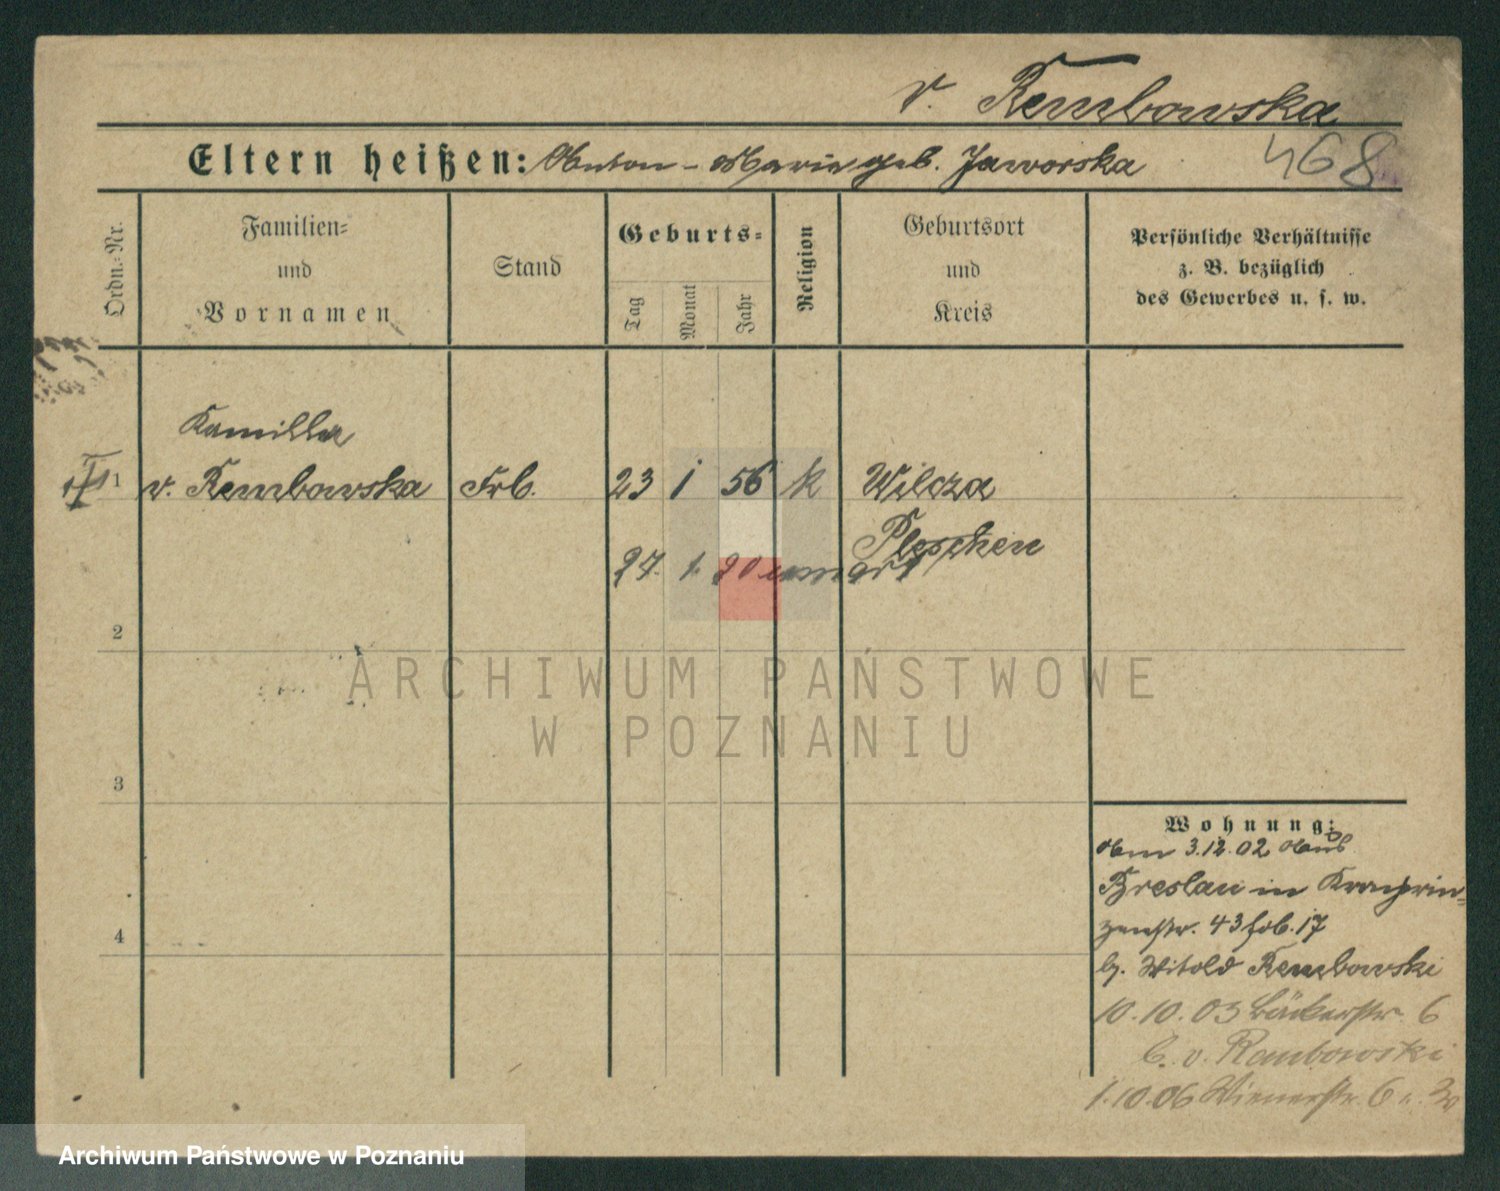 v. Rembowska
Eltern heißen: Anton - Maria geb. Jaworska
468
Ordn.-Nr.
Familien-
und
Vornamen
Stand
Geburts-
Tag
Monat
Jahr
Religion
Geburtsort
und
Kreis
Persönliche Verhältnisse
z. B. bezüglich
des Gewerbes u. s. w.
Kamilla
1 v. Rembowska Frl. 23 1 56 k Wilcza
Pleschen
27. 1. 20
2
ARCHIWUM PAŃSTWOWE
W POZNANIU
3
4
Wohnung:
Am 3.12.02 aus
Breslau in Kronprin-
zenstr. 43 fol. 17
b. Witold Rembowski
10.10.03 Bäckerstr. 6
b. v. Rembowski
1.10.06 Wienerstr. 6
Archiwum Państwowe w Poznaniu